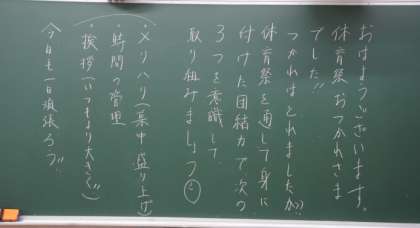 おはようございます。
体育祭おつかれさま
でした!!
つかれはとれましたか??
体育祭を通して身に
付けた団結力で次の
3つを意識して
取り組みましょう
・メリハリ(集中 盛り上げ)
・時間の管理
・挨拶(いつもより大きく!!)
今日も一日頑張ろう!!